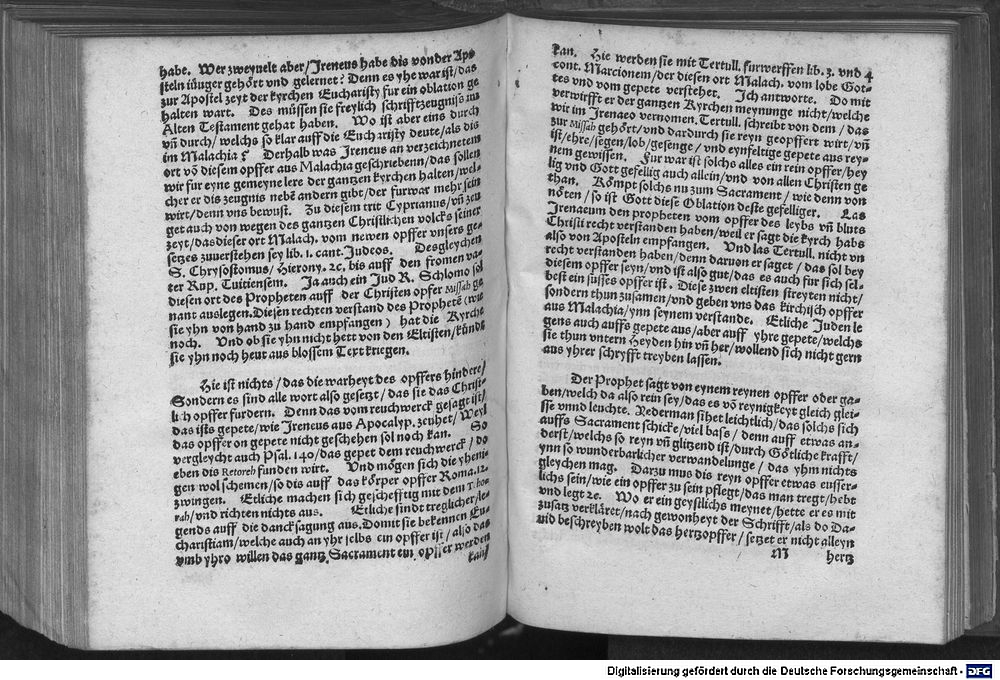 habe. Wer zweyuelt aber/Ireneus habe dis vonder Apo
steln iůnger gehört vnd gelernet? Denn es yhe war ist/das
zur Apostel zeyt der kyrchen Eucharisty fur ein oblation ge
halten wart. Des müssen sie freylich schrifftzeugnis im
Alten Testament gehat haben. Wo ist aber eins durch
vñ durch/welchs so klar auff die Eucharisty deute/als dis
im Malachia? Derhalb was Ireneus an verzeichnetem
ort võ diesem opffer aus Malachia geschriebenn/das sollen
wir fur eyne gemeyne lere der gantzen kyrchen halten/wel-
cher er dis zeugnis nebẽ andern gibt/der furwar mehr sein
wirt/denn vns bewust. Zu diesem trit Cyprianus/vñ zeu
get auch von wegen des gantzen Christlichen volcks seiner
zeyt/das dieser ort Malach. vom newen opffer vnsers ge-
setzes zuuerstehen sey lib. 1. cont. Judeos. Desgleychen
S. Chrysostomus/Hierony. ꝛc. bis auff den fromen va-
ter Rup. Tuitiensem. Ja auch ein Jud R. Schlomo sol
diesen ort des Propheten auff der Christen opfer Missah ge
nant auslegen. Diesen rechten verstand des Prophetẽ (wie
sie yhn von hand zu hand empfangen) hat die Kyrche
noch. Vnd ob sie yhn nicht hett von den Eltisten/künde
sie yhn noch heut aus blossem Text kriegen.
Hie ist nichts/das die warheyt des opffers hindere/
Sondern es sind alle wort also gesetzt/das sie das Christ-
lich opffer furdern. Denn das vom reuchwerck gesagt ist/
das ists gepete/wie Ireneus aus Apocalyp. zeuhet/Weyl
das opffer on gepete nicht geschehen sol noch kan. So
vergleycht auch Psal. 140/das gepet dem reuchwerck/do
eben dis Retoreh funden wirt. Vnd mögen sich die yhenie
gen wol schemen/so dis auff das körper opffer Roma. 12.
zwingen. Etliche machen sich geschefftig mit dem Thor
rah/vnd richten nichts aus. Etliche sindt treglicher/le-
gends auff die dancksagung aus. Domit sie bekennen Eu-
charistiam/welche auch an yhr selbs ein opffer ist/also das
vmb yhro willen das gantz Sacrament ein opffer werden
kan/
kan. Hie werden sie mit Tertull. furwerffen lib. 3. vnd 4
cont. Marcionem/der diesen ort Malach. vom lobe Got-
tes vnd vom gepete verstehet. Ich antworte. Do mit
verwirfft er der gantzen Kyrchen meynunge nicht/welche
wir im Irenaeo vernomen. Tertull. schreibt von dem/das
zur Missah gehört/vnd dardurch sie reyn geopffert wirt/vñ
ist/ehre/segen/lob/gesenge/vnd eynfeltige gepete aus rey-
nem gewissen. Fur war ist solchs alles ein rein opffer/hey
lig vnd Gott gefellig auch allein/vnd von allen Christen ge
than. Kömpt solchs nu zum Sacrament/wie denn von
nöten/so ist Gott diese Oblation deste gefelliger. Las
Irenaeum den propheten vom opffer des leybs vñ bluts
Christi recht verstanden haben/weil er sagt die kyrch habs
also von Aposteln empfangen. Vnd las Tertull. nicht vn
recht verstanden haben/denn daruon er saget/das sol bey
diesem opffer seyn/vnd ist also gut/das es auch für sich sel-
best ein susses opffer ist. Diese zwen eltisten streyten nicht/
sondern thun zusamen/vnd geben vns das kirchisch opffer
aus Malachia/ynn seynem verstande. Etliche Juden le
gens auch auffs gepete aus/aber auff yhre gepete/welchs
sie thun vntern Heyden hin vñ her/wollend sich nicht gern
aus yhrer schryfft treyben lassen.
Der Prophet sagt von eynem reynen opffer oder ga-
ben/welch da also rein sey/das es võ reynigkeyt gleich glei-
sse vnnd leuchte. Jederman sihet leichtlich/das solchs sich
auffs Sacrament schicke/viel bass/denn auff etwas an-
derst/welchs so reyn vñ glitzend ist/durch Götliche krafft/
ynn so wunderbarlicher verwandelunge/das yhm nichts
gleychen mag. Darzu mus dis reyn opffer etwas eusser-
lichs sein/wie ein opffer zu sein pflegt/das man tregt/hebt
vnd legt ꝛc. Wo er ein geystlichs meynet/hette er es mit
zusatz verkläret/nach gewonheyt der Schrifft/als do Da-
uid beschreyben wolt das hertzopffer/setzet er nicht alleyn
M hertz
Digitalisierung gefördert durch die Deutsche Forschungsgemeinschaft - DFG